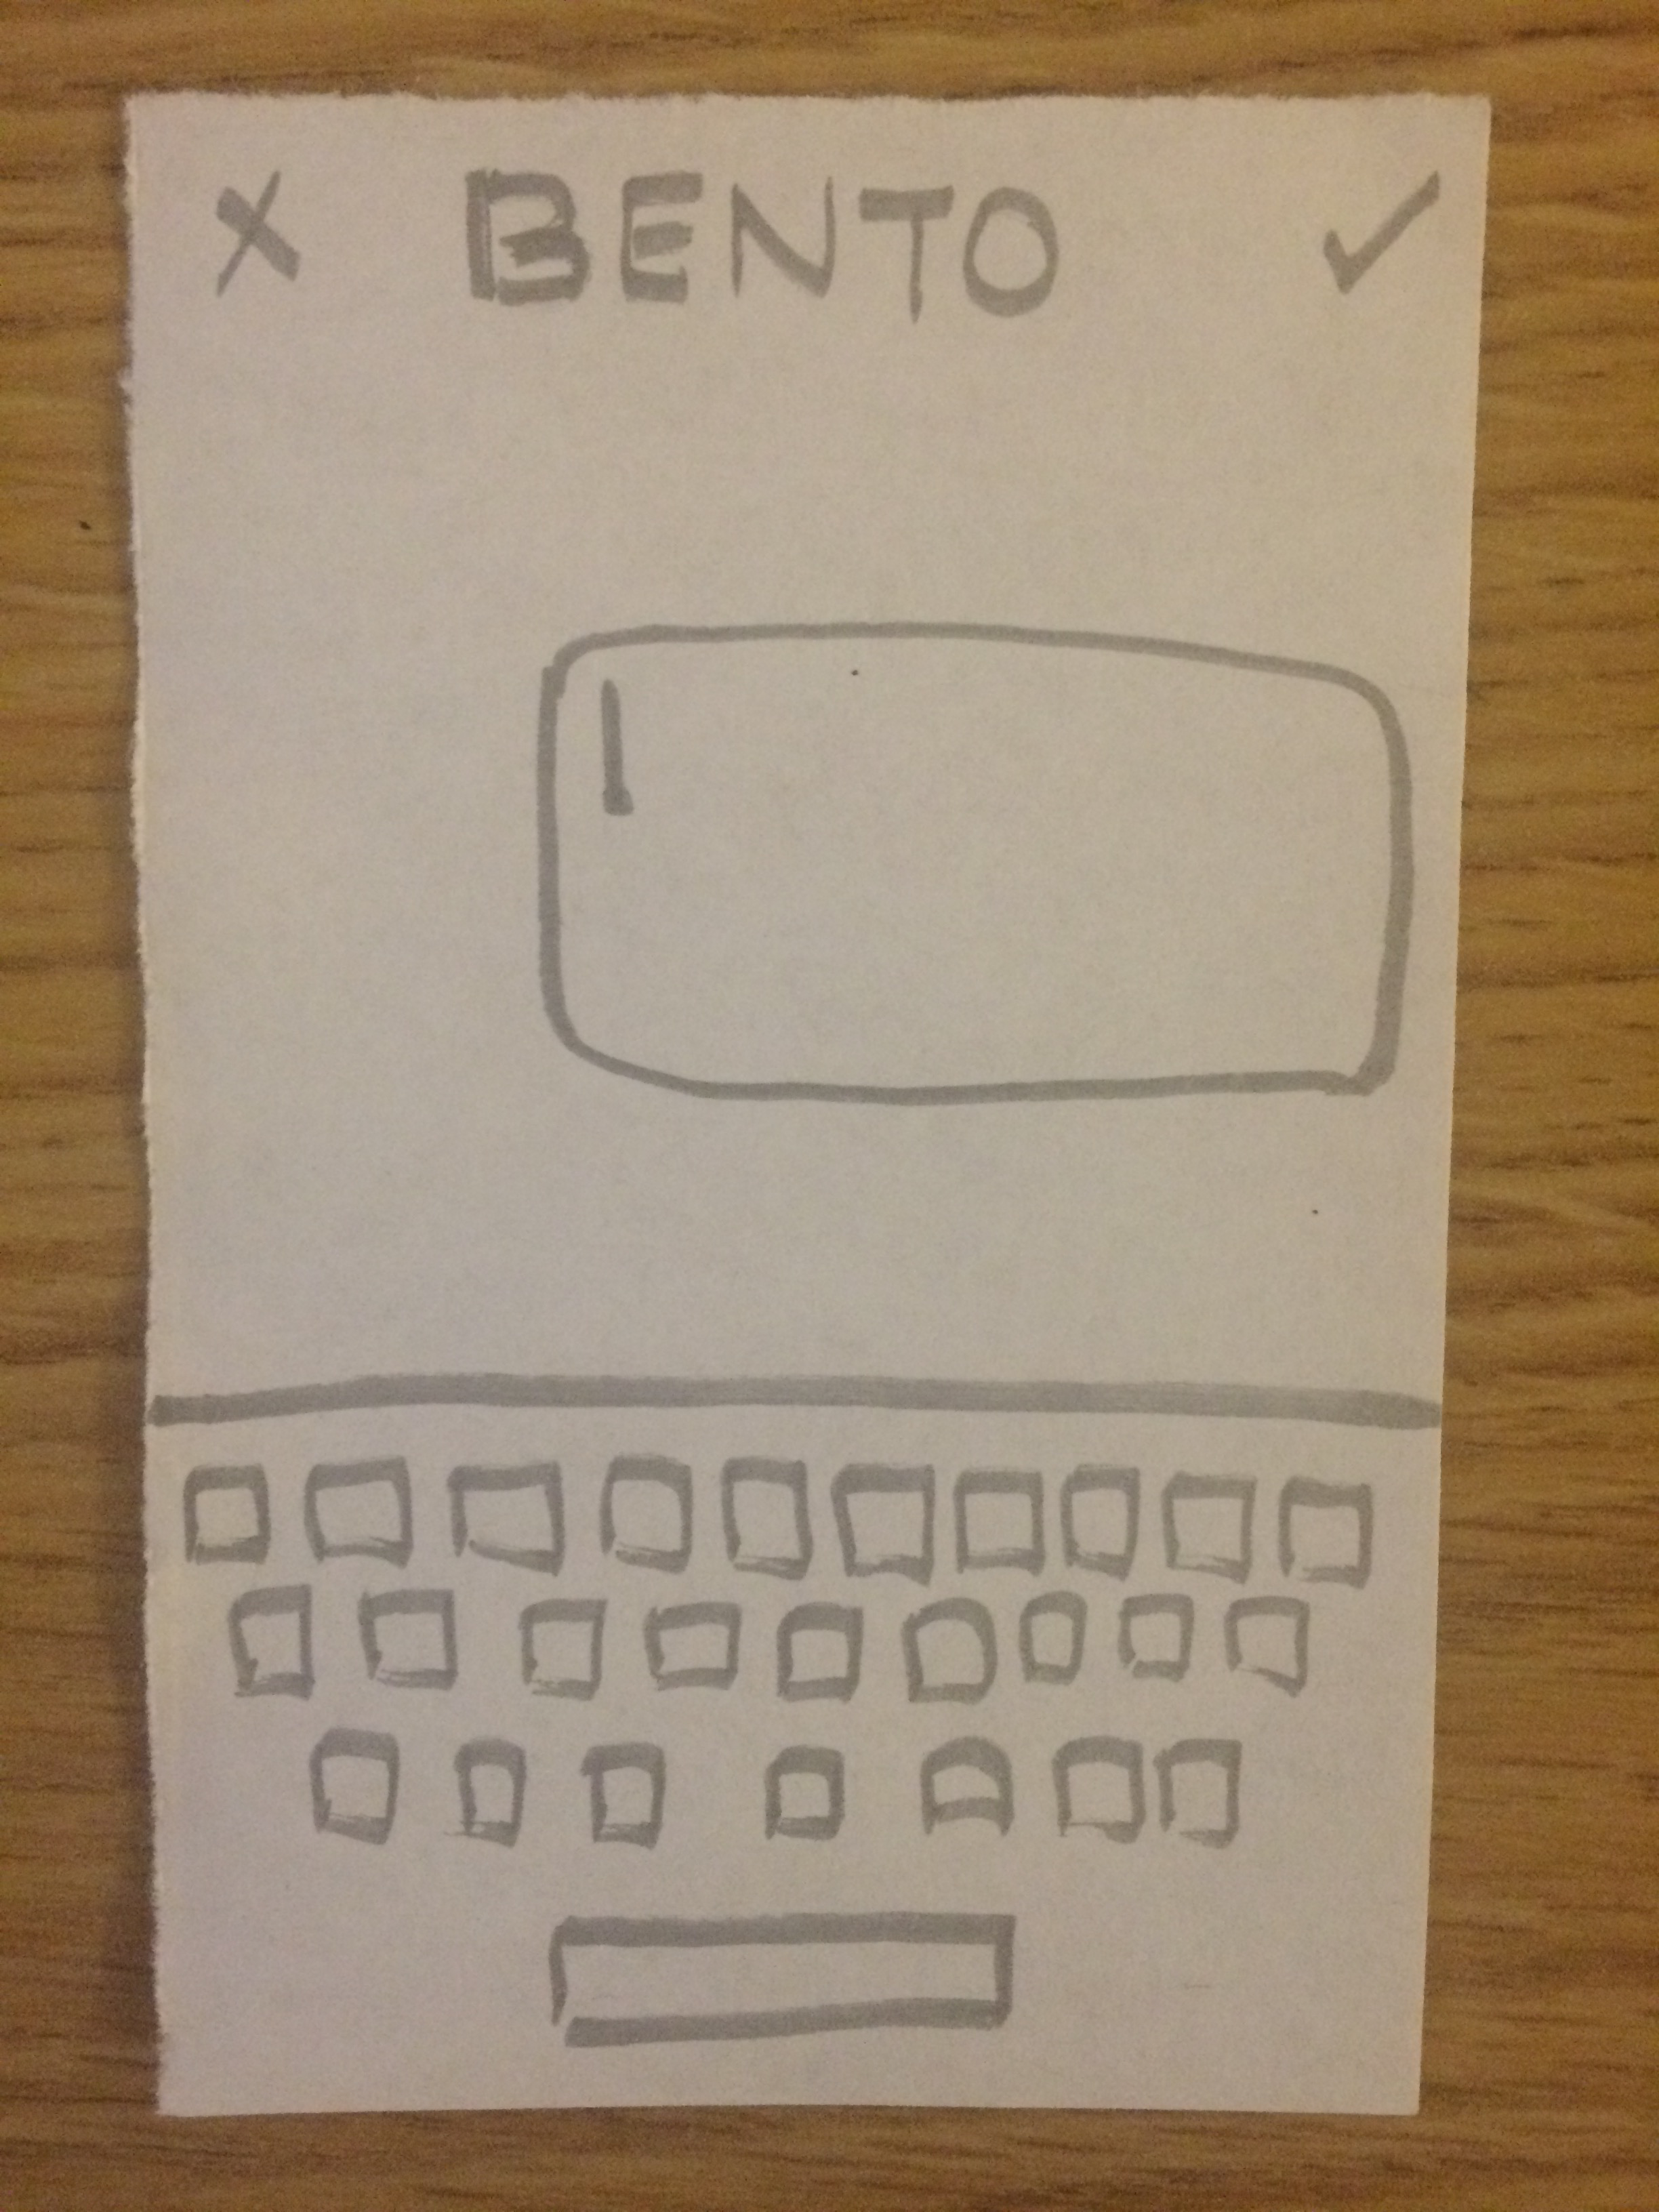 X BENTO ✓